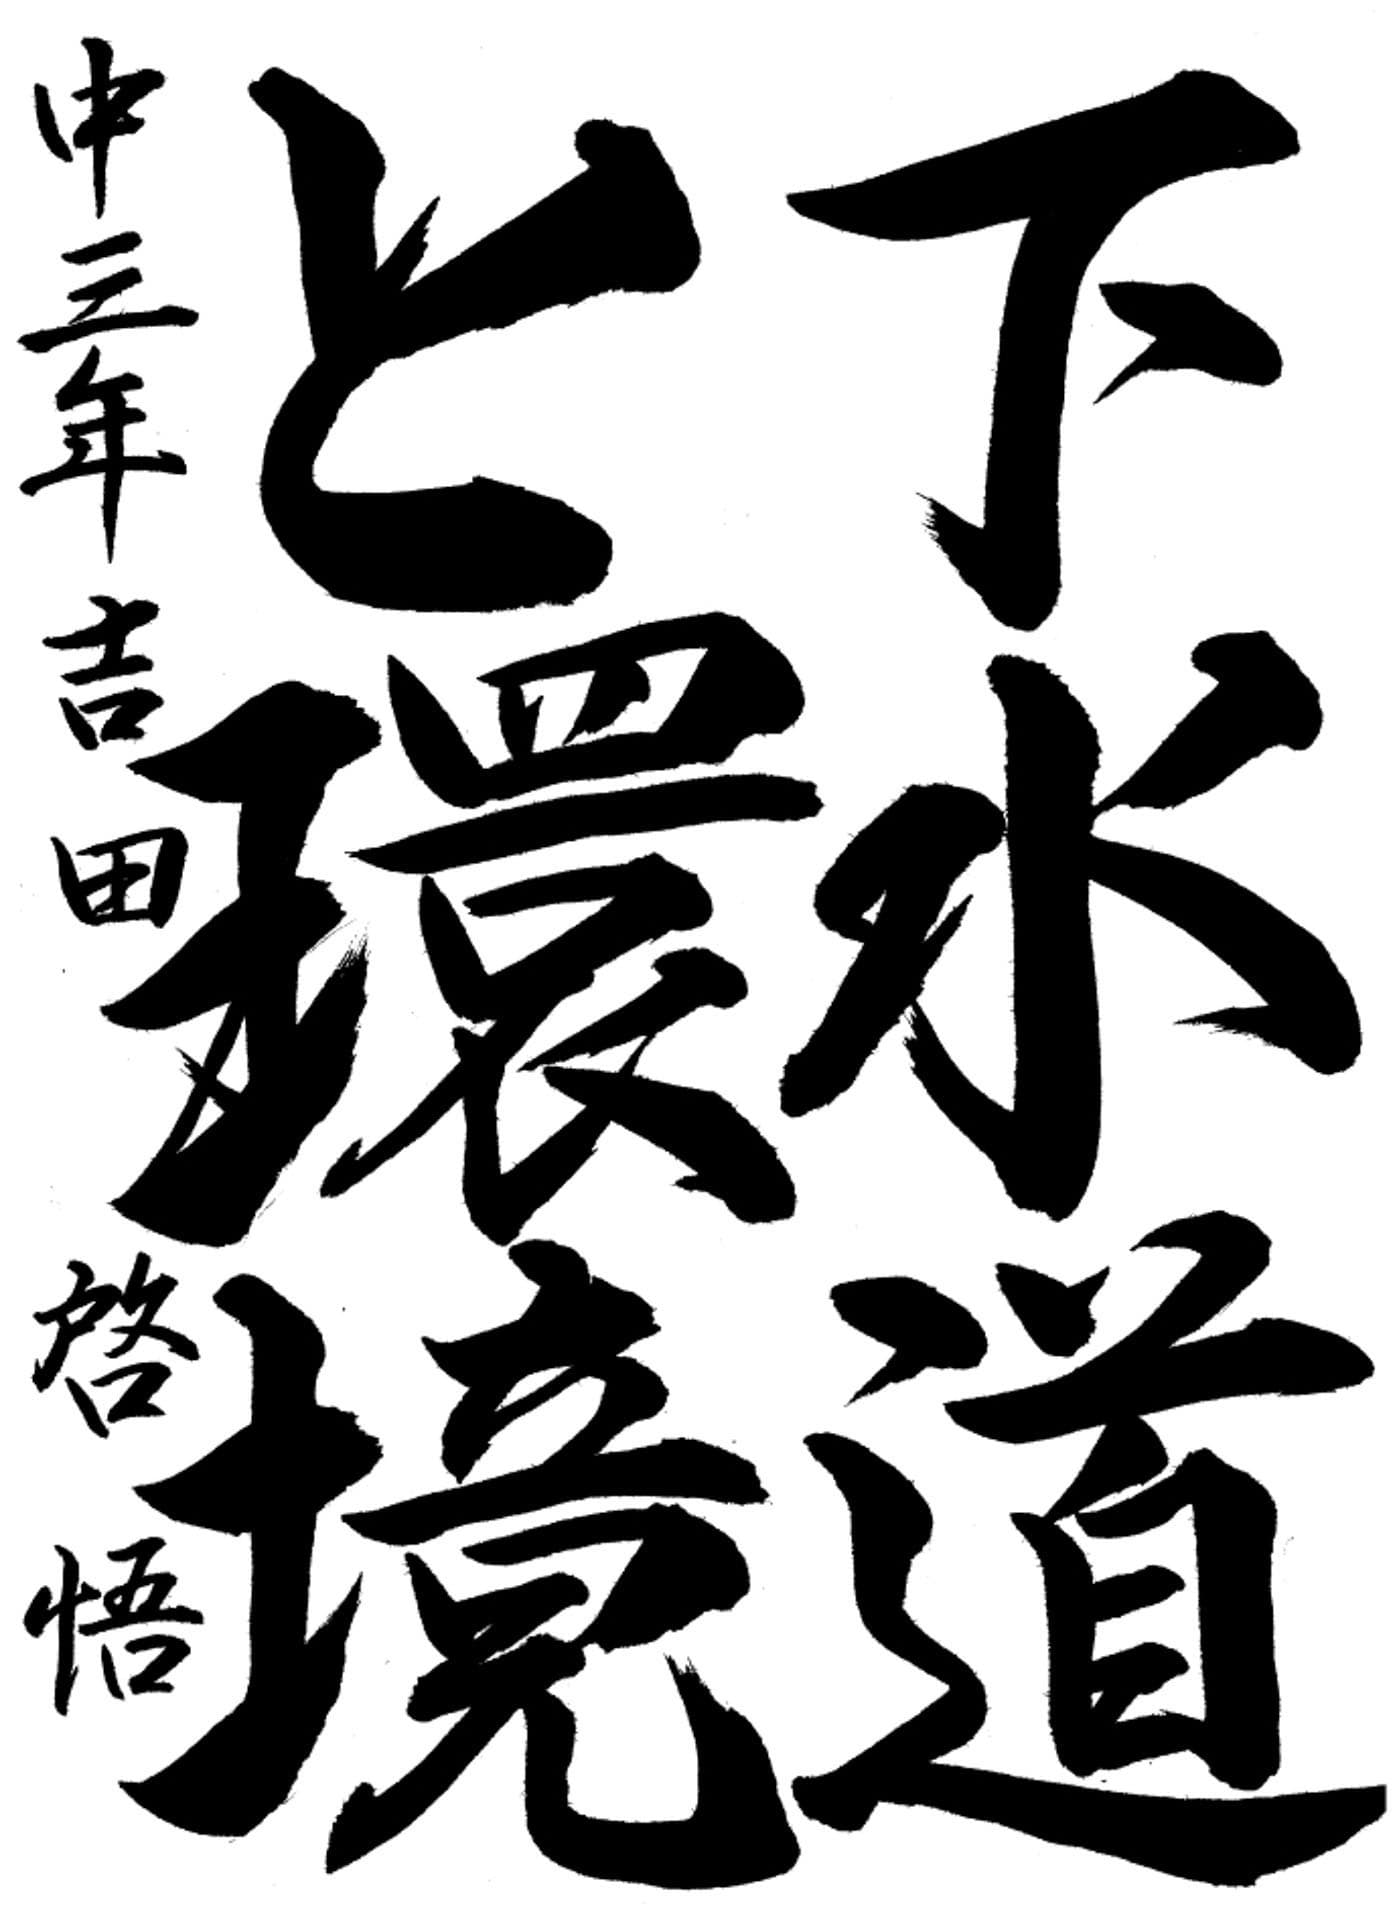 下水道
と環境
中三年 吉田啓悟